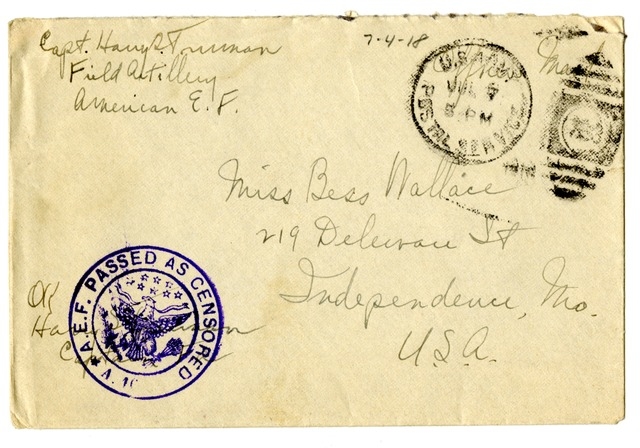 Capt. Harry S. Truman
Field Artillery
American E. F.
7-4-18
Officers Mail
U.S. ARMY
POSTAL SERVICE
JUL 5
PM
Miss Bess Wallace
219 Delewau St
Independence, Mo.
U.S.A.
OK
Captain
A.E.F. PASSED AS CENSORED